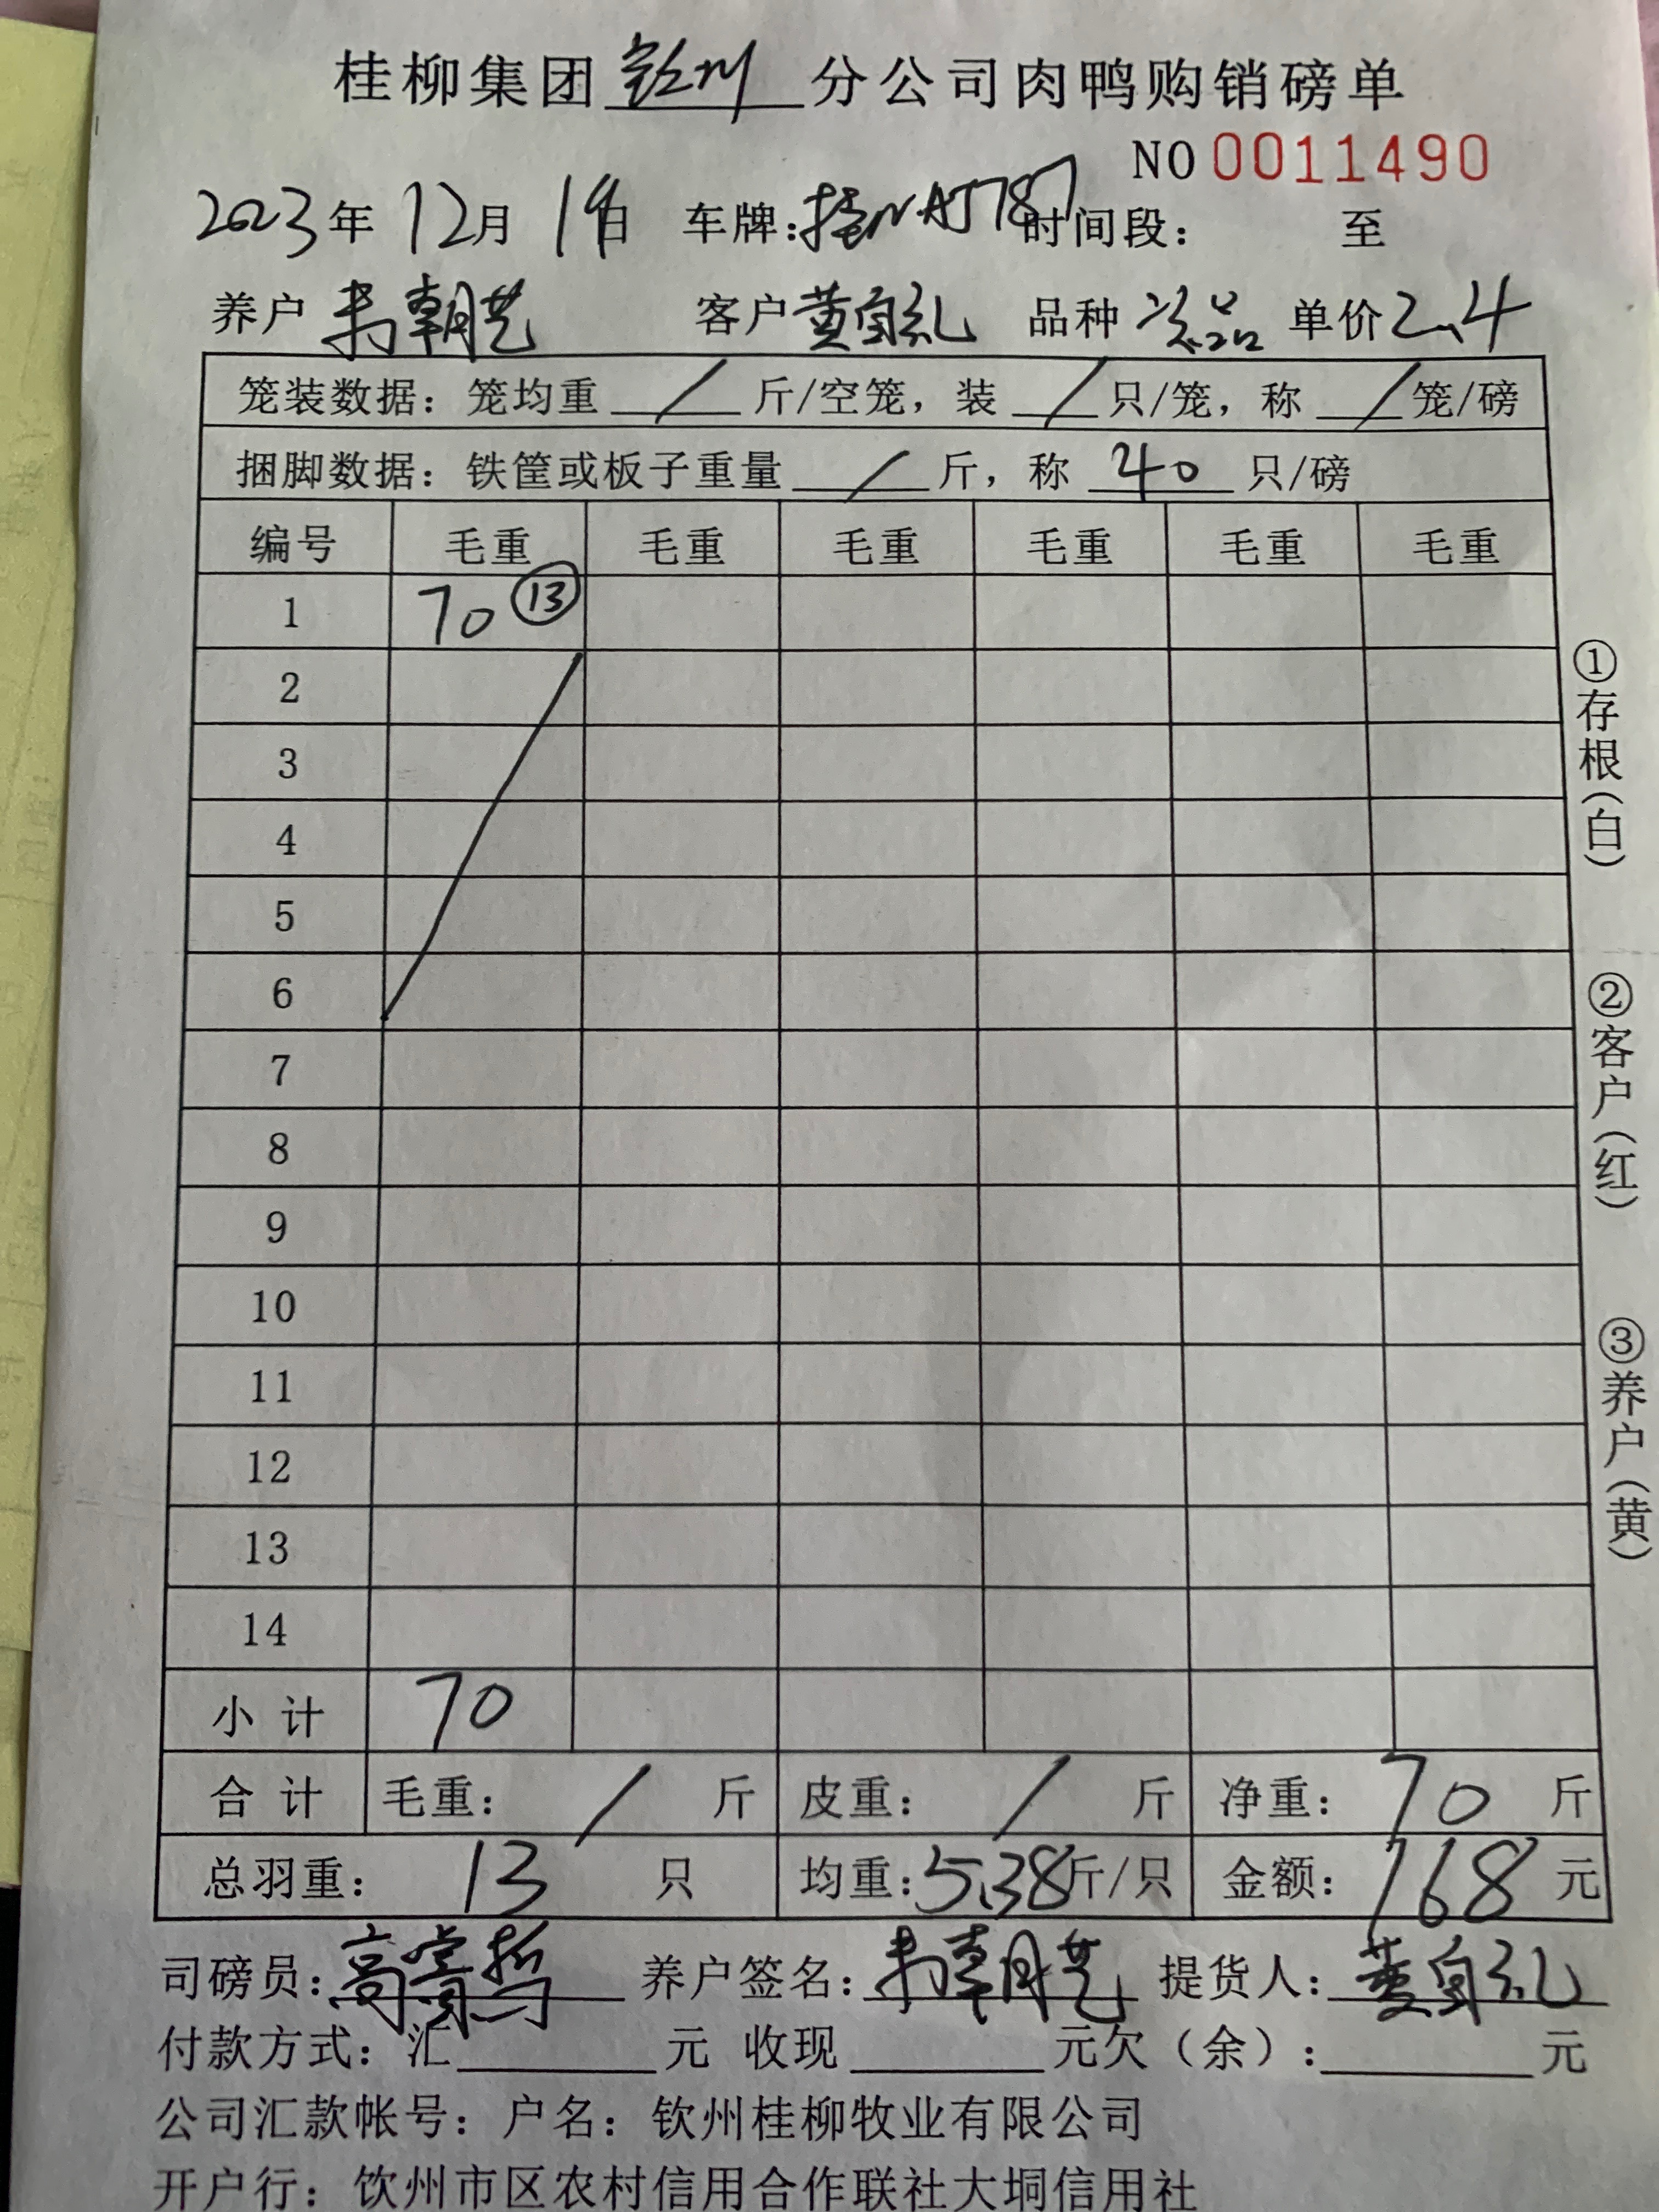 桂柳集团钦州分公司肉鸭购销磅单
NO 0011490
2023年12月19日 车牌:桂NAJ787 时间段: 至
养户 韦朝艺 客户 黄自礼 品种 次品 单价2.4
笼装数据:笼均重 / 斤/空笼,装 / 只/笼,称 / 笼/磅
捆脚数据:铁筐或板子重量 / 斤,称 40 只/磅
编号 毛重 毛重 毛重 毛重 毛重 毛重
1 70 ⑬
2
3
4
5
6
7
8
9
10
11
12
13
14
小计 70
合计 毛重: / 斤 皮重: / 斤 净重:70 斤
总羽重:13 只 均重:5.38斤/只 金额:168 元
司磅员:高 哲 养户签名:韦朝艺 提货人:黄自礼
付款方式:汇 元 收现 元欠(余): 元
公司汇款帐号:户名:钦州桂柳牧业有限公司
开户行:钦州市区农村信用合作联社大垌信用社
①存根(白)
②客户(红)
③养户(黄)